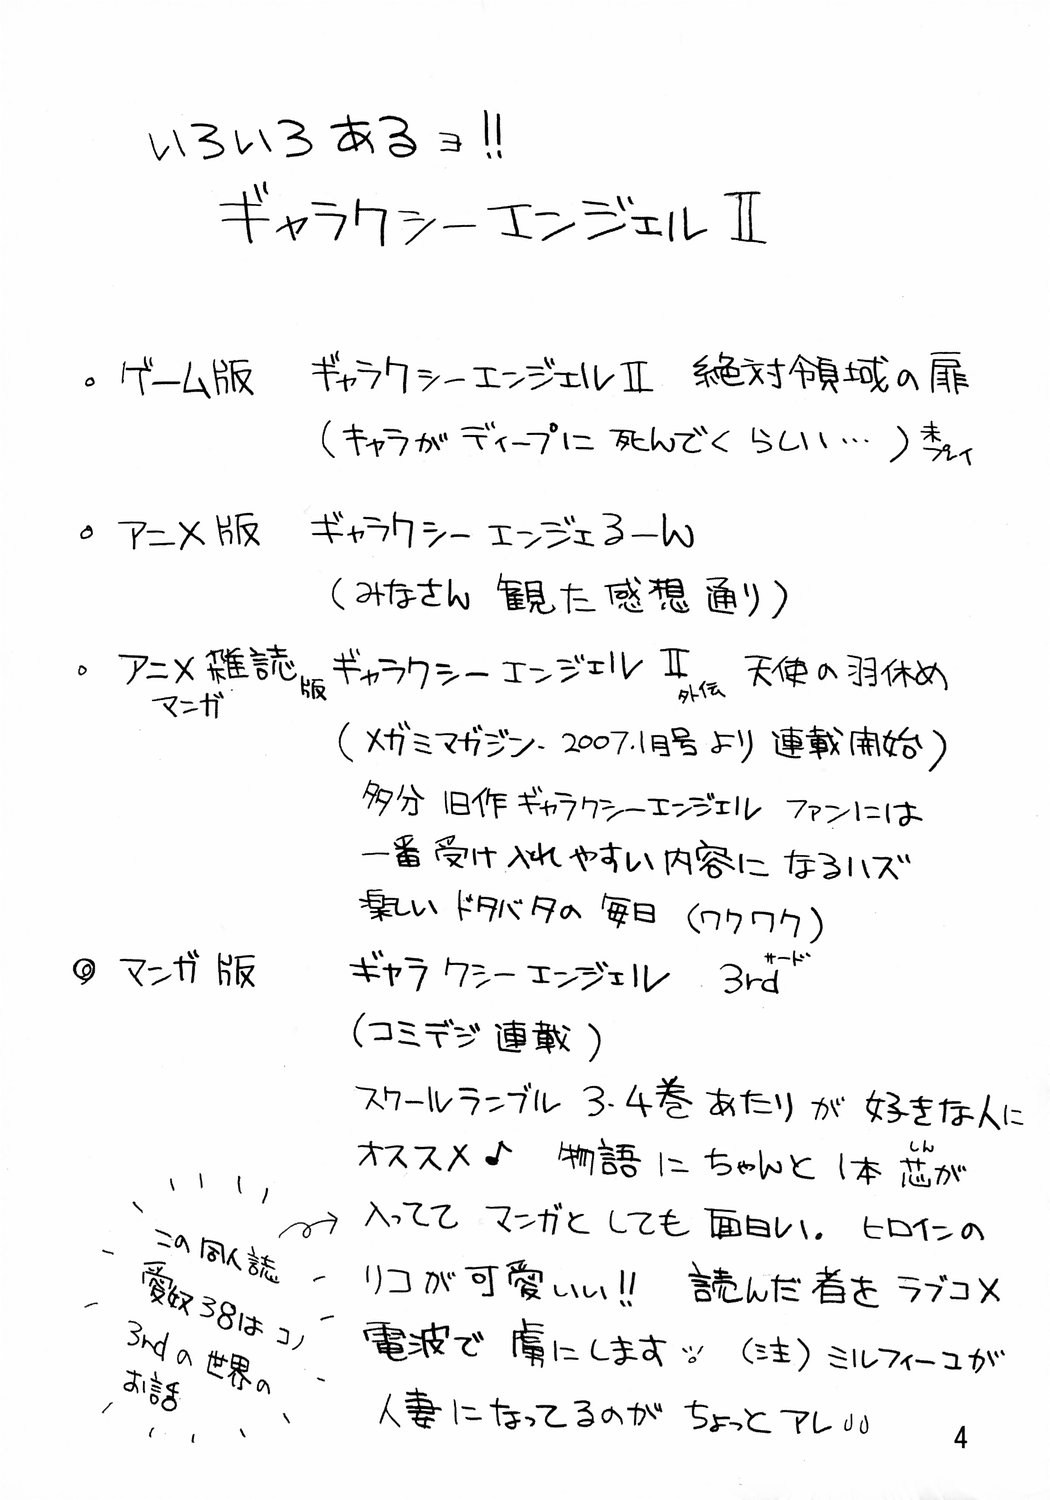 いろいろあるョ!!
ギャラクシーエンジェルⅡ
。ゲーム版 ギャラクシーエンジェルⅡ 絶対領域の扉
(キャラがディープに死んでくらしい…)未プレイ
。アニメ版 ギャラクシーエンジェるーん
(みなさん観た感想通り)
。アニメ雑誌マンガ版 ギャラクシーエンジェルⅡ外伝 天使の羽休め
(メガミマガジン. 2007.1月号より連載開始)
多分 旧作ギャラクシーエンジェル ファンには
一番受け入れやすい内容になるハズ
楽しいドタバタの毎日(ワクワク)
◎ マンガ版 ギャラクシーエンジェル 3rd
サード
(コミデジ連載)
スクールランブル 3.4巻あたりが好きな人に
オススメ♪ 物語にちゃんと1本芯が
しん
入ってて マンガとしても面白い。ヒロインの
リコが可愛いい!! 読んだ者をラブコメ
電波で虜にします (注)ミルフィーユが
人妻になってるのがちょっとアレ
この同人誌
愛奴38はコノ
3rdの世界の
お話
4